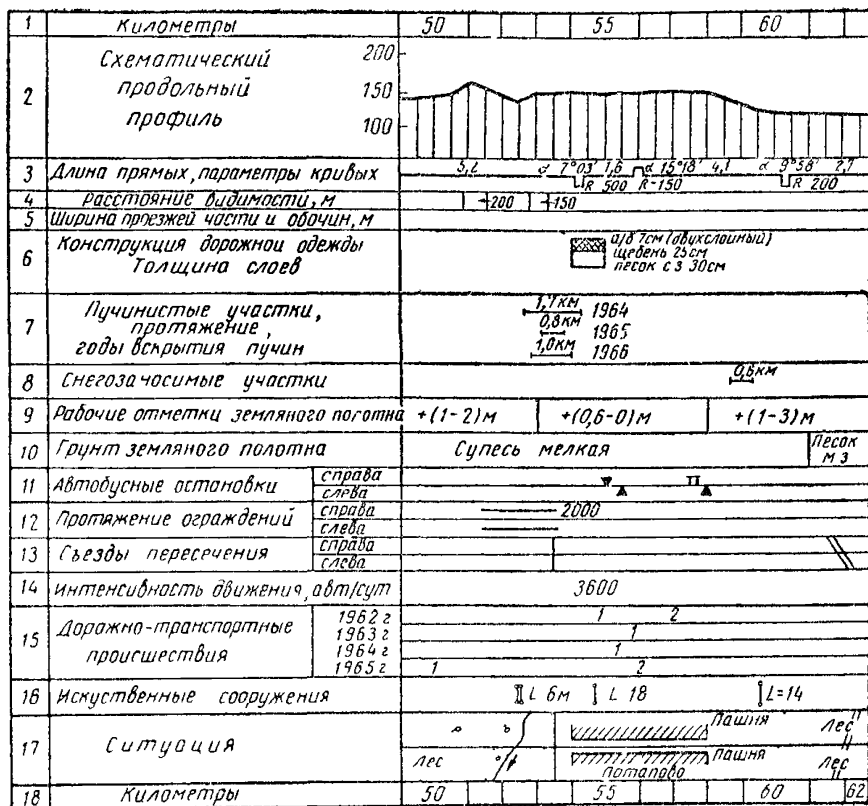 1 Километры 50 55 60
2 Схематический продольный профиль 200 150 100
3 Длина прямых, параметры кривых 5,2 α 7°03' 1,6 α 15°18' 4,1 α 9°58' 2,7
R 500 R-150 R 200
4 Расстояние видимости, м 200 150
5 Ширина проезжей части и обочин, м
6 Конструкция дорожной одежды
Толщина слоев
а/б 7см (двухслойный)
щебень 25см
песок с з 30см
7 Пучинистые участки,
протяжение,
годы вскрытия пучин
1,7км 1964
0,8км 1965
1,0км 1966
8 Снегозаносимые участки 0,6км
9 Рабочие отметки земляного полотна +(1-2)м +(0,6-0)м +(1-3)м
10 Грунт земляного полотна Супесь мелкая Песок м з
11 Автобусные остановки справа
слева
12 Протяжение ограждений справа 2000
слева
13 Съезды пересечения справа
слева
14 Интенсивность движения, авт/сут 3600
15 Дорожно-транспортные
происшествия
1962 г 1 2
1963 г 1
1964 г 1
1965 г 1 2
16 Искуственные сооружения L 6м L 18 L=14
17 Ситуация Пашня Лес
Лес Пашня Лес
Потапово
18 Километры 50 55 60 62